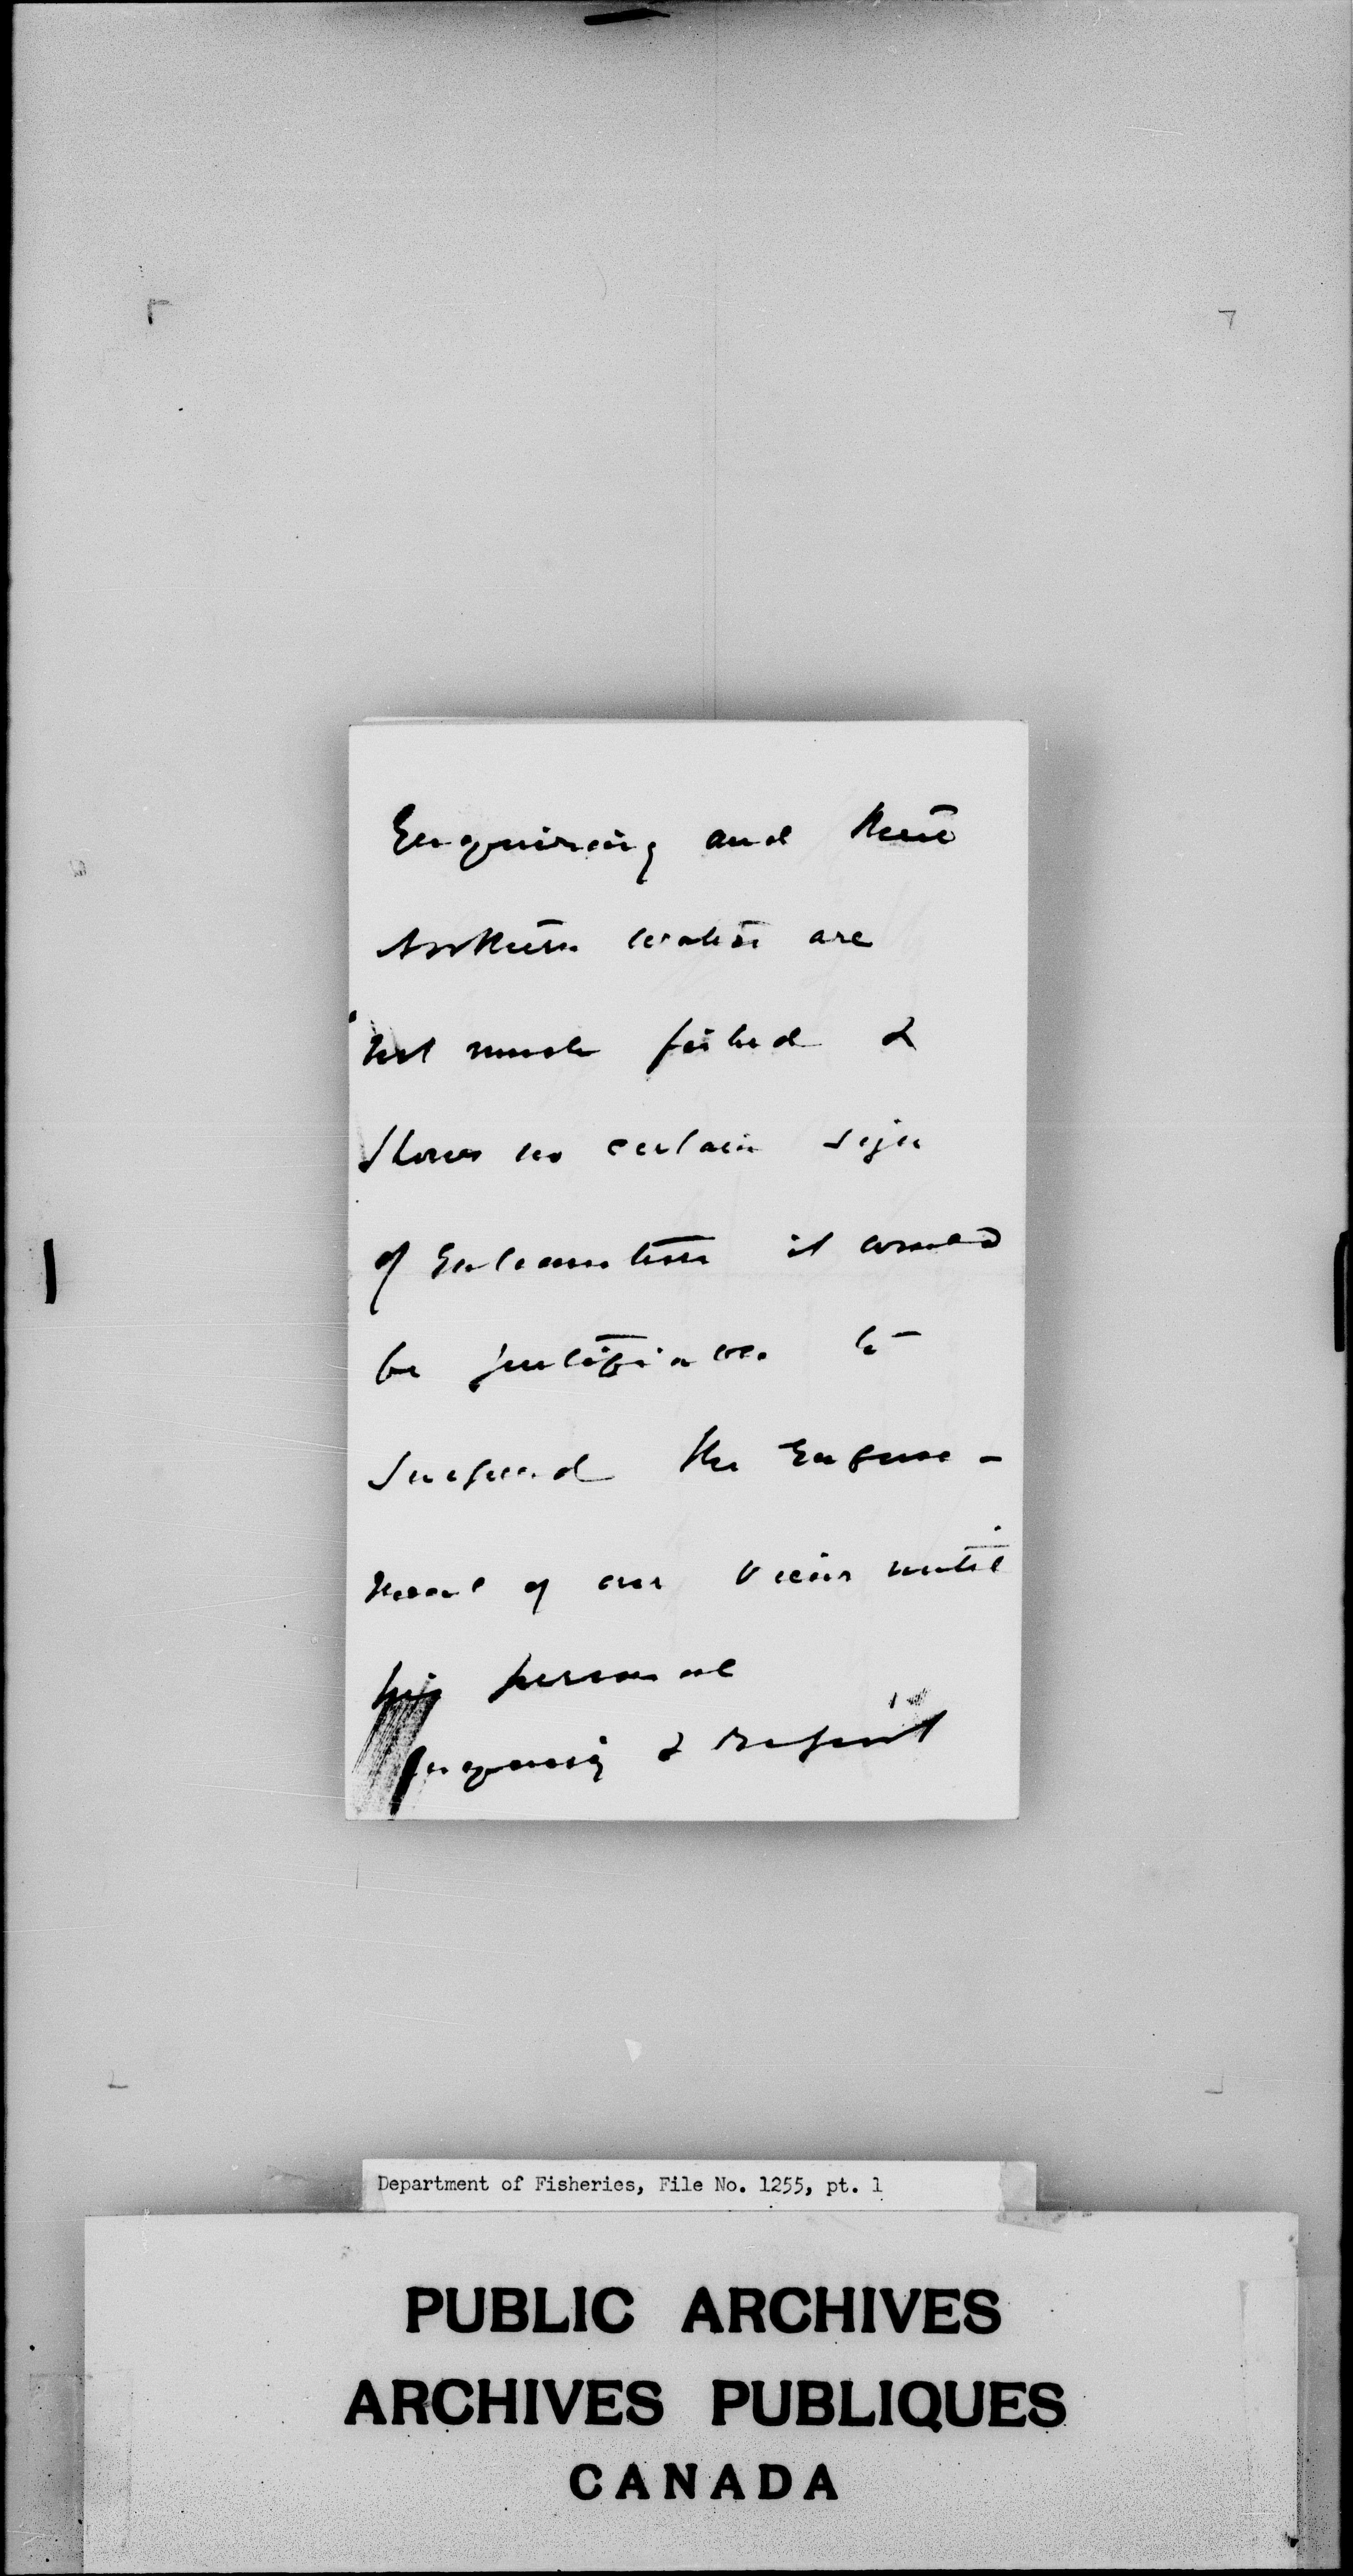 Enquiring and these
northern waters are
not much fished &
shows no certain sign
of exhaustion it would
be justifiable to
suspend the
of our views until
his personal
enquiry & report
Department of Fisheries, File No. 1255, pt. 1
PUBLIC ARCHIVES
ARCHIVES PUBLIQUES
CANADA